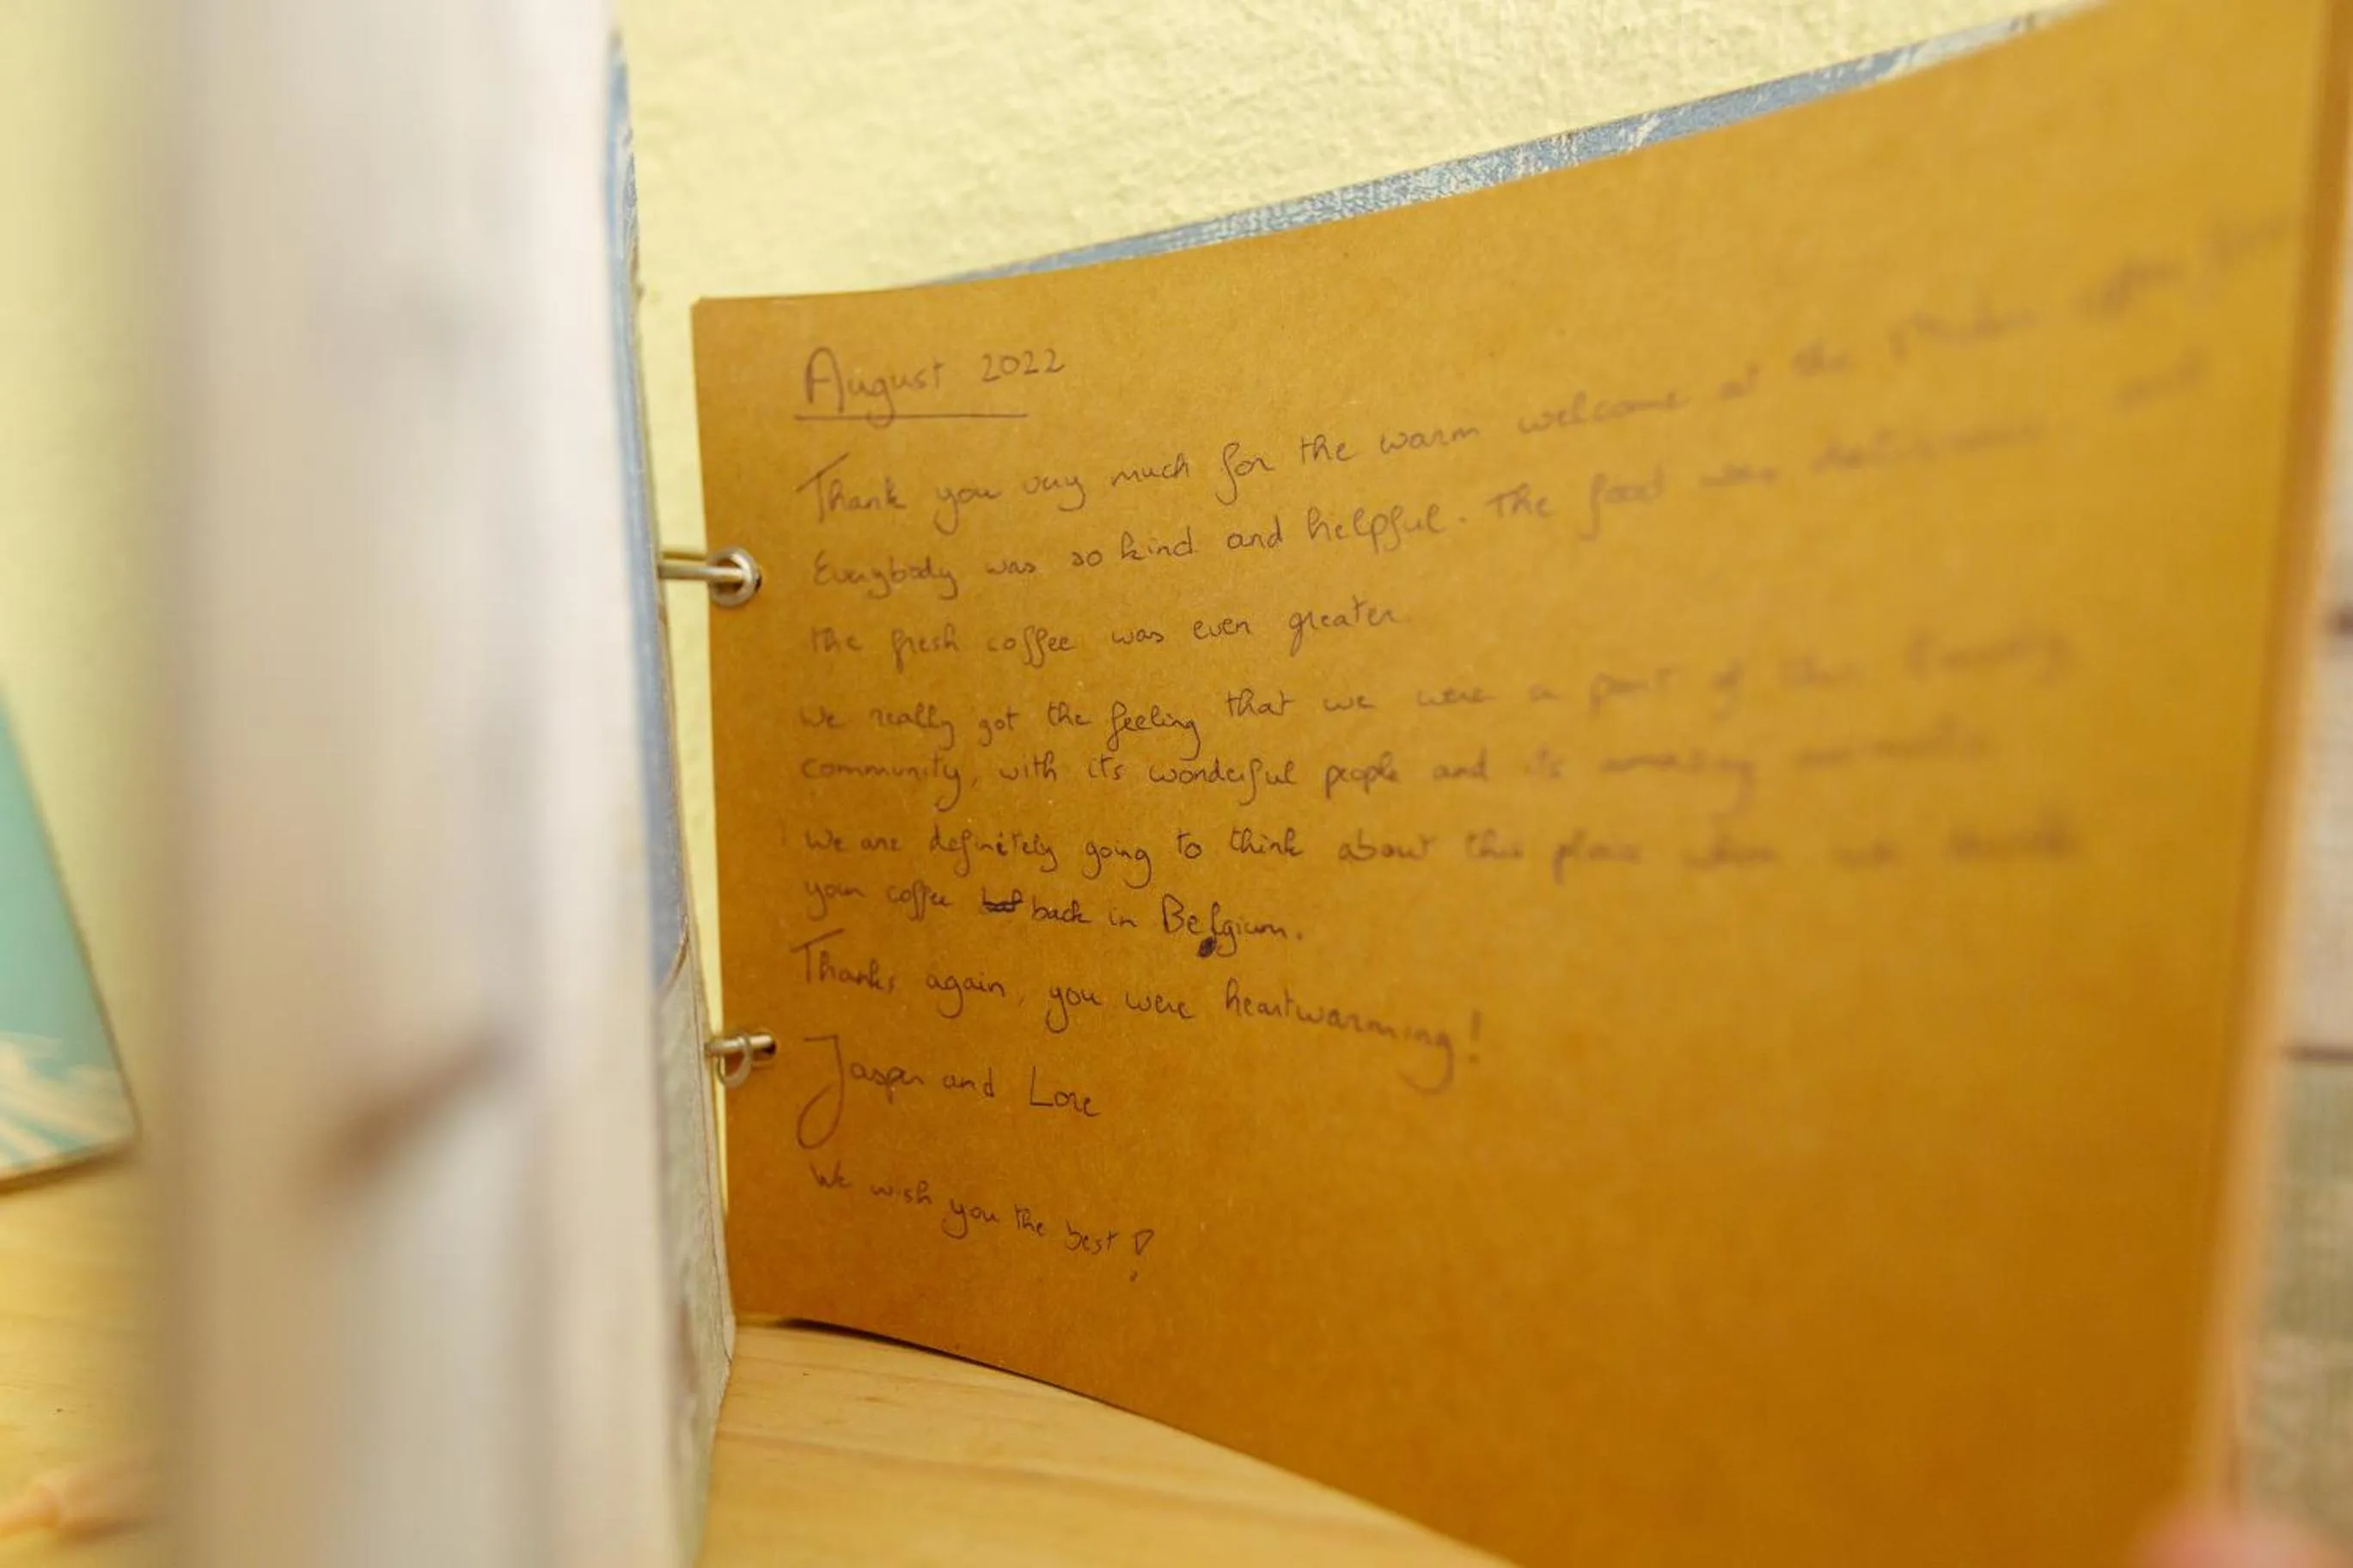 August 2022
Thank you very much for the warm welcome at the
Everybody was so kind and helpful. The food was delicious and
the fresh coffee was even greater.
We really got the feeling that we were a part of the family
community, with its wonderful people and its amazing animals.
We are definitely going to think about this place when we drink
your coffee back in Belgium.
Thanks again, you were heartwarming!
Jasper and Lore
We wish you the best!